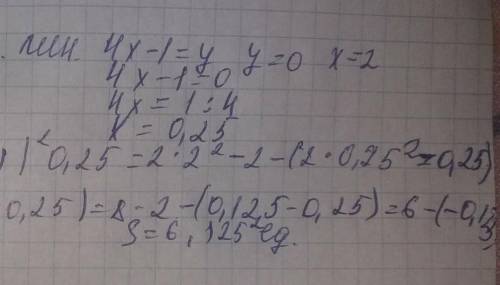 4x-1=y y=0 x=2
4x-1=0
4x=1:4
x=0,25
)|² 0,25=2·2²-2-(2·0,25²-0,25)
0,25)=8-2-(0,125-0,25)=6-(-0,1
S=6,125 ед.